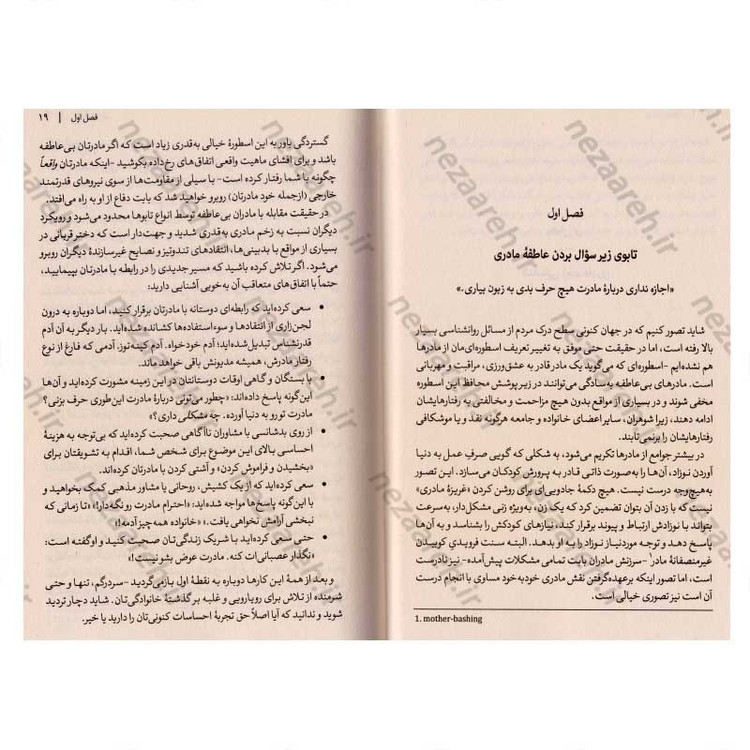 فصل اول
تابوی زیر سؤال بردن عاطفهٔ مادری
«اجازه نداری دربارهٔ مادرت هیچ حرف بدی به زبون بیاری.»
شاید تصور کنیم که در جهان کنونی سطح درک مردم از مسائل روانشناسی بسیار
بالا رفته است، اما در حقیقت حتی موفق به تغییر تعریف اسطوره‌ای‌مان از مادرها
هم نشده‌ایم -اسطوره‌ای که می‌گوید یک مادر قادر به عشق‌ورزی، مراقبت و مهربانی
است. مادرهای بی‌عاطفه به‌سادگی می‌توانند در زیر پوشش محافظ این اسطوره
مخفی شوند و در بسیاری از مواقع بدون هیچ مزاحمت و مخالفتی به رفتارهایشان
ادامه دهند، زیرا شوهران، سایر اعضای خانواده و جامعه هرگونه نقد و یا موشکافی
رفتارهایشان را برنمی‌تابند.
در بیشتر جوامع از مادرها تکریم می‌شود، به شکلی که گویی صرفِ عمل به دنیا
آوردن نوزاد، آن‌ها را به‌صورت ذاتی قادر به پرورش کودکان می‌سازد. این تصور
به‌هیچ‌وجه درست نیست. هیچ دکمهٔ جادویی‌ای برای روشن کردن «غریزهٔ مادری»
نیست که با زدن آن بتوان تضمین کرد که یک زن، به‌ویژه زنی مشکل‌دار، به‌سرعت
بتواند با نوزادش ارتباط و پیوند برقرار کند، نیازهای کودکش را بشناسد و به آن‌ها
پاسخ دهد و توجه موردنیاز نوزاد را به او بدهد. البته سنت فرویدی کوبیدن
غیرمنصفانهٔ مادر¹ -سرزنش مادران بابت تمامی مشکلات پیش‌آمده- نیز نادرست
است، اما تصور اینکه برعهده‌گرفتن نقش مادری خودبه‌خود مساوی با انجام درست
آن است نیز تصوری خیالی است.
1. mother-bashing
فصل اول | ۱۹
گستردگی باور به این اسطورهٔ خیالی به‌قدری زیاد است که اگر مادرتان بی‌عاطفه
باشد و برای افشای ماهیت واقعی اتفاق‌های رخ‌داده بکوشید -اینکه مادرتان واقعاً
چگونه با شما رفتار کرده است- با سیلی از مقاومت‌ها از سوی نیروهای قدرتمند
خارجی (ازجمله خود مادرتان) روبرو خواهید شد که بابت دفاع از او به راه می‌افتد.
در حقیقت مقابله با مادران بی‌عاطفه توسط انواع تابوها محدود می‌شود و رویکرد
دیگران نسبت به زخم مادری به‌قدری شدید و جهت‌دار است که دختر قربانی در
بسیاری از مواقع با بدبینی‌ها، انتقادهای تندوتیز و نصایح غیرسازندهٔ دیگران روبرو
می‌شود. اگر تلاش کرده باشید که مسیر جدیدی را در رابطه با مادرتان بپیمایید،
حتماً با اتفاق‌های متعاقب آن به‌خوبی آشنایی دارید:
• سعی کرده‌اید که رابطه‌ای دوستانه با مادرتان برقرار کنید، اما دوباره به درون
لجن‌زاری از انتقادها و سوءاستفاده‌ها کشانده شده‌اید. بار دیگر به آن آدم
قدرنشناس تبدیل‌شده‌اید؛ آدم خودخواه. آدم کینه‌توز. آدمی که فارغ از نوع
رفتار مادرش، همیشه مدیونش باقی خواهد ماند.
• با بستگان و گاهی اوقات دوستانتان در این زمینه مشورت کرده‌اید و آن‌ها
این‌گونه پاسخ داده‌اند: «چطور می‌تونی دربارهٔ مادرت این‌طوری حرف بزنی؟
مادرت تو رو به دنیا آورده. چه مشکلی داری؟»
• از روی بدشانسی با مشاوران ناآگاهی صحبت کرده‌اید که بی‌توجه به هزینهٔ
احساسی بالای این موضوع برای شخص شما، اقدام به تشویقتان برای
«بخشیدن و فراموش کردن» و آشتی کردن با مادرتان کرده‌اند.
• سعی کرده‌اید که از یک کشیش، روحانی یا مشاور مذهبی کمک بخواهید و
با این‌گونه پاسخ‌ها مواجه شده‌اید: «احترام مادرت رو نگه‌دار!»، «تا زمانی که
نبخشی آرامش نخواهی یافت.» «خانواده همه‌چیز آدمه!»
• حتی سعی کرده‌اید با شریک زندگی‌تان صحبت کنید و او گفته است:
«نگذار عصبانی‌ات کنه. مادرت عوض بشو نیست!»
و بعد از همهٔ این کارها دوباره به نقطهٔ اول بازمی‌گردید -سردرگم، تنها و حتی
شرمنده از تلاش برای رویارویی و غلبه بر گذشتهٔ خانوادگی‌تان. شاید دچار تردید
شوید و ندانید که آیا اصلاً حق تجربهٔ احساسات کنونی‌تان را دارید یا خیر.
nezaareh.ir